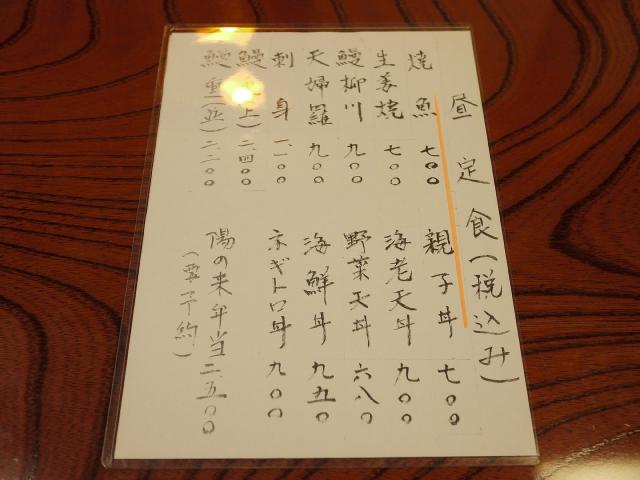 昼定食(税込み)
焼魚 七〇〇
生姜焼 七〇〇
鰻柳川 九〇〇
天婦羅 九〇〇
刺身 一、一〇〇
鰻重(上) 二、四〇〇
鰻重(並) 二、二〇〇
親子丼 七〇〇
海老天丼 九〇〇
野菜天丼 六八〇
海鮮丼 九五〇
ネギトロ丼 九〇〇
陽の来弁当 二、五〇〇
(要予約)